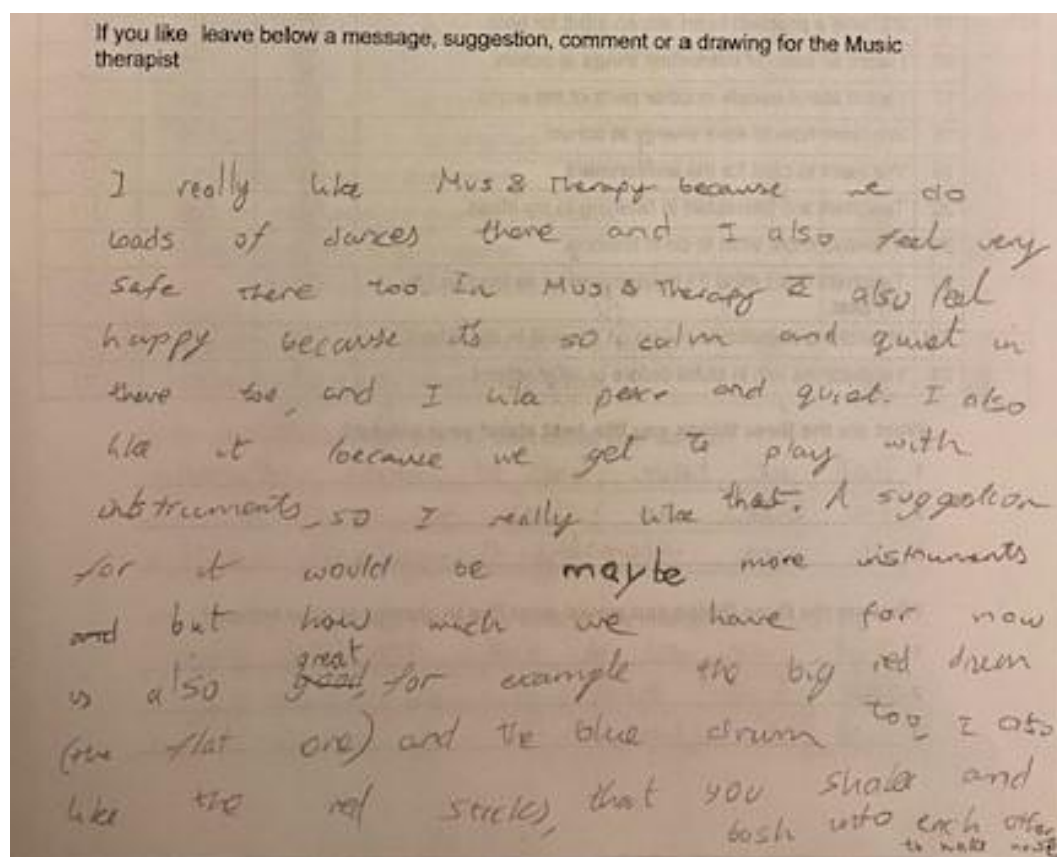 If you like leave below a message, suggestion, comment or a drawing for the Music
therapist
I really like Mus & Therapy because we do
loads of dances there and I also feel very
safe there too. In Mus & Therapy I also feel
happy because it's so calm and quiet in
there too, and I like peace and quiet. I also
like it because we get to play with
instruments, so I really like that. A suggestion
for it would be maybe more instruments
and but how much we have for now
is also good great, for example the big red drum
(the flat one) and the blue drum too, I also
like the red sticks, that you shake and
bash into each other
to make noise